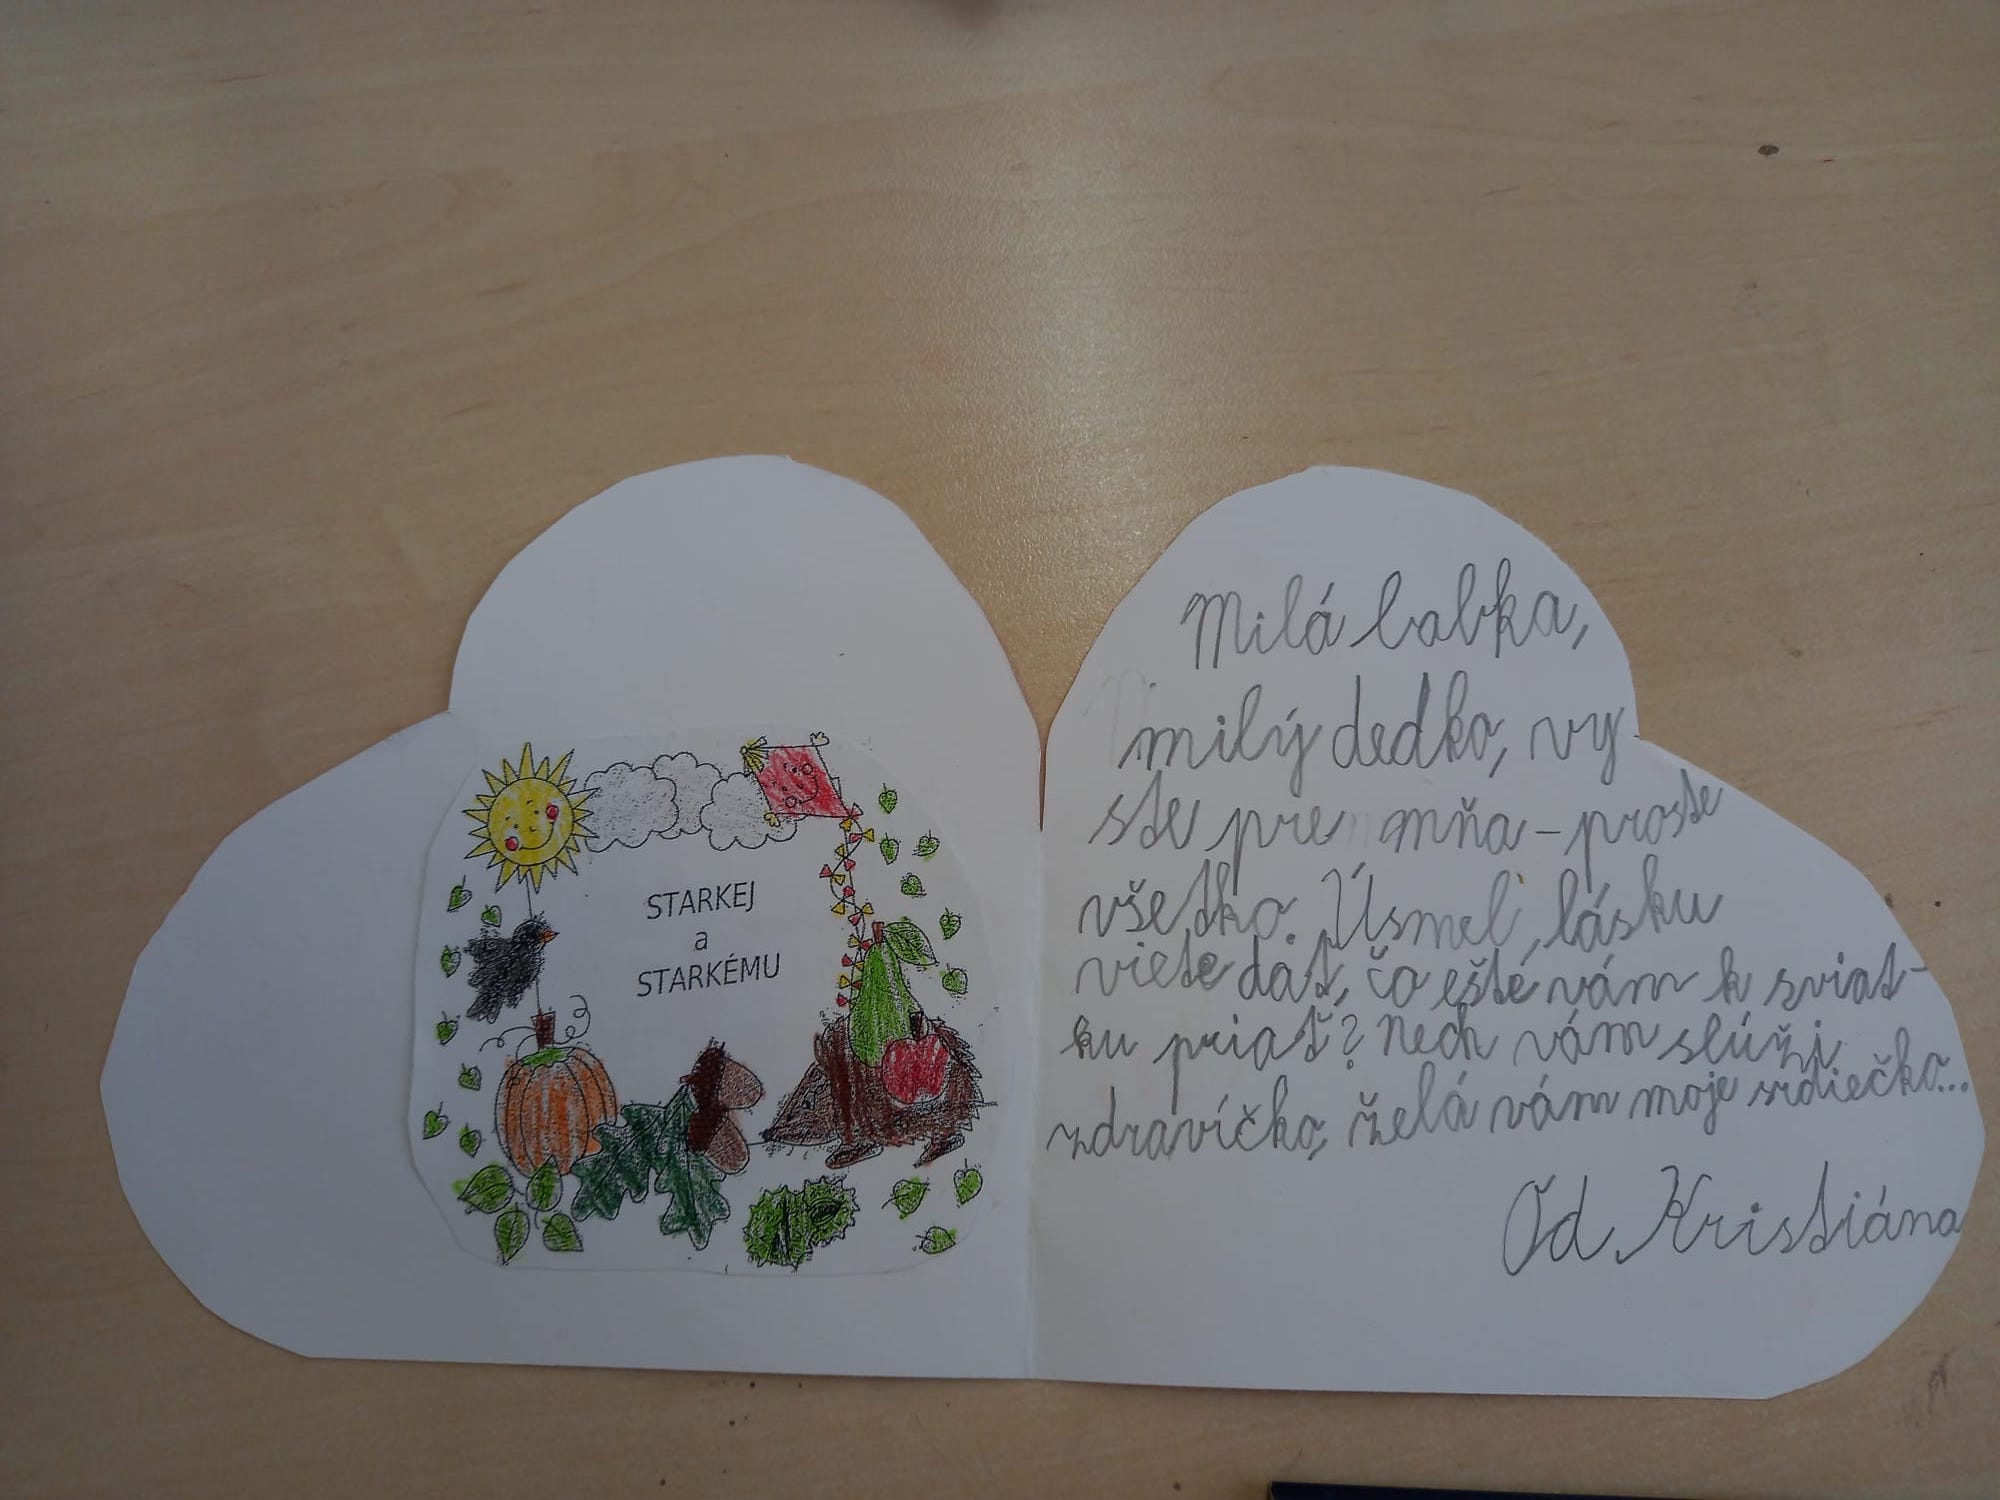 STARKEJ
a
STARKÉMU
Milá babka,
milý dedko, vy
ste pre mňa - proste
všetko. Úsmel, lásku
viete dať, čo ešte vám k sviat-
ku priať? Nech vám slúži
zdravíčko, želá vám moje srdiečko...
Od Kristiána